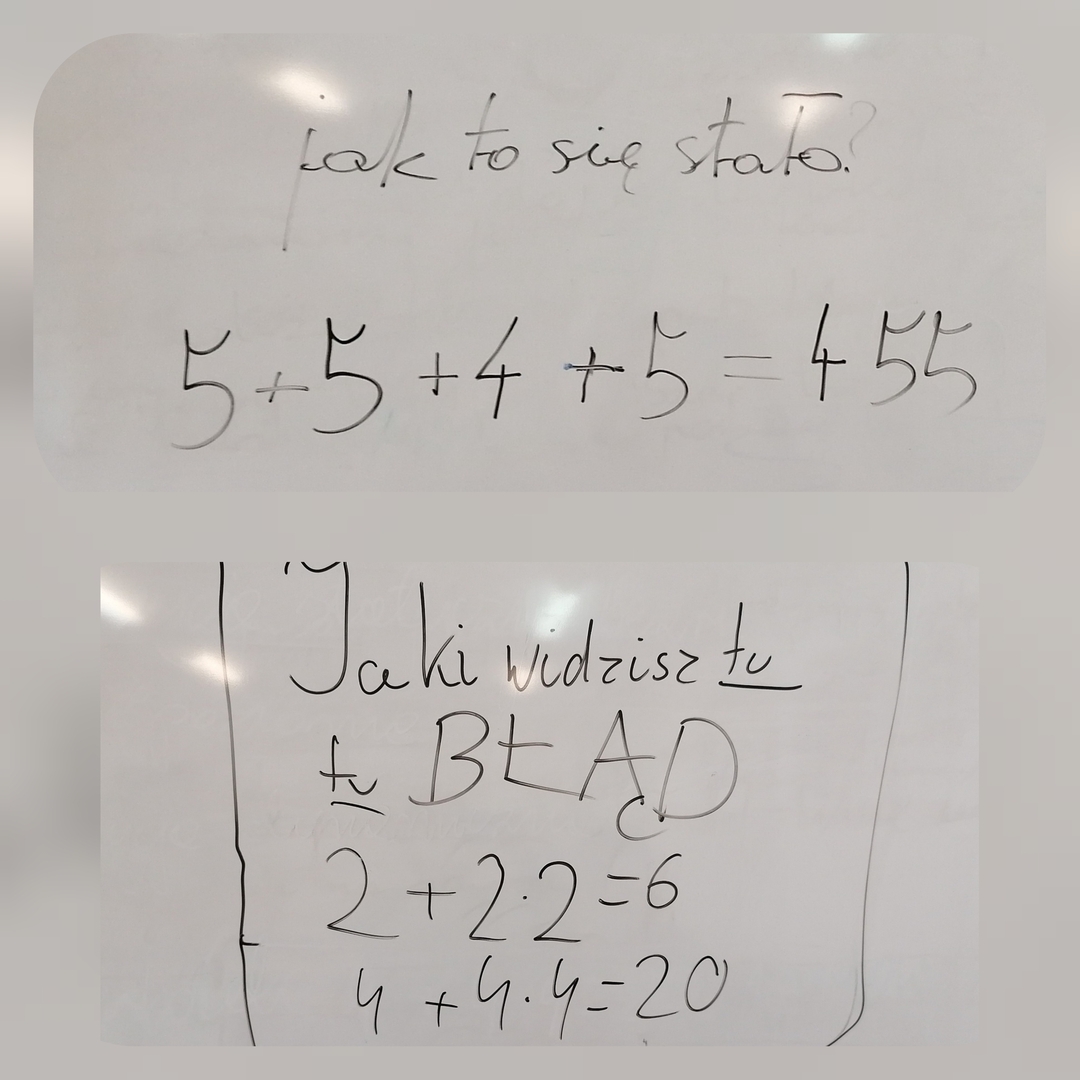 jak to się stało?
5+5+4+5=455
Jaki widzisz tu
tu BŁĄD
2+2·2=6
4+4·4=20